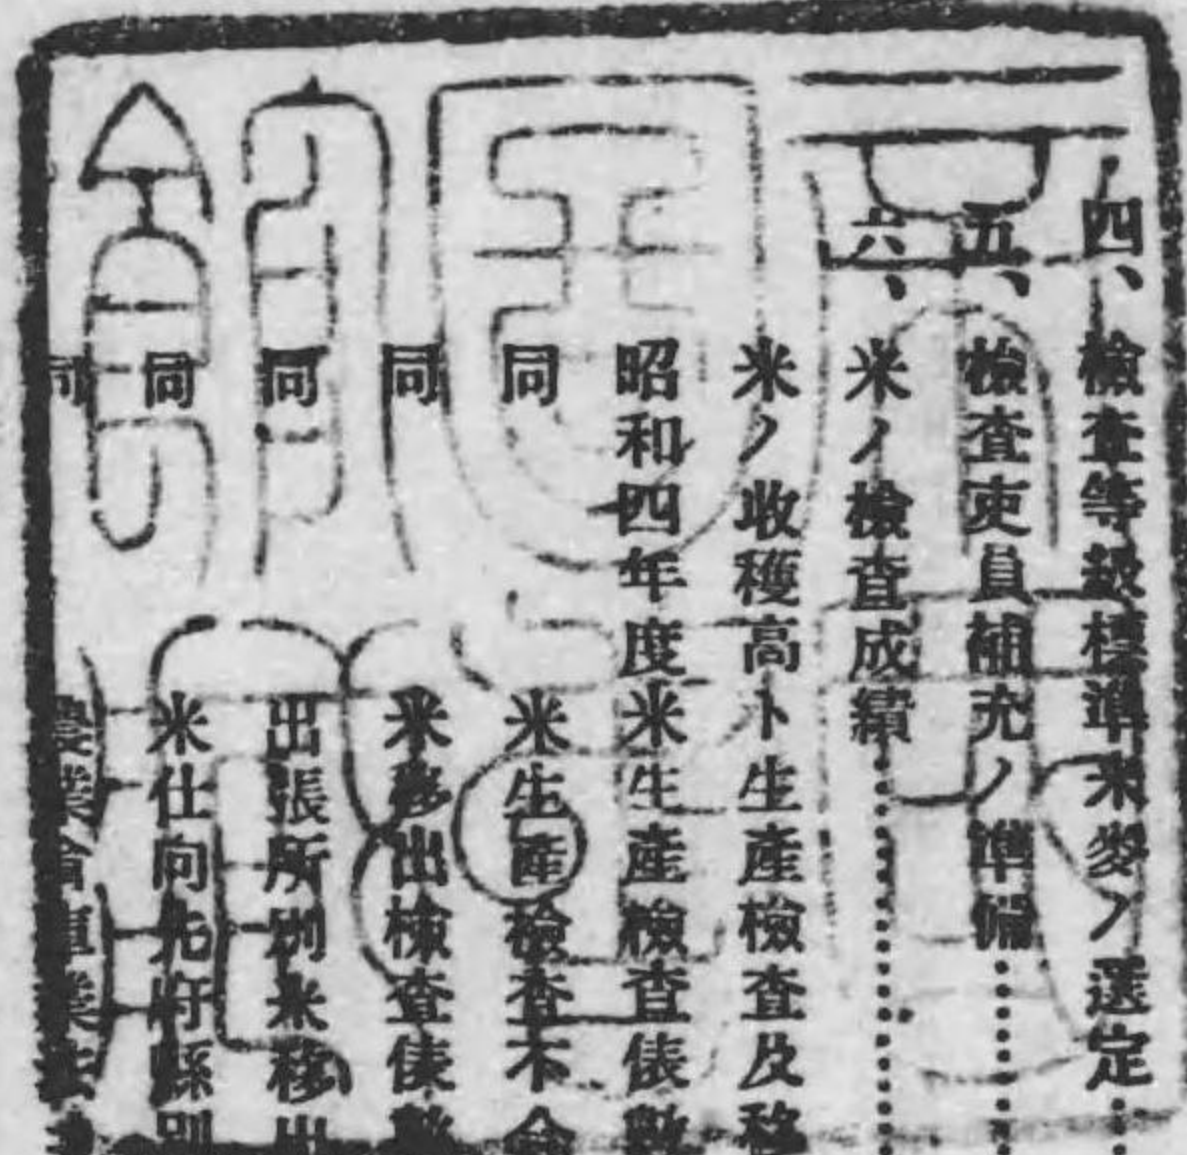 四、檢查等級標準米麥ノ選定
五、檢查吏員補充ノ準備
六、米ノ檢查成績
米ノ收穫高ト生產檢查及移
昭和四年度米生產檢查俵數
同 米生產檢查不合
同 米移出檢查俵數
同 出張所別米移出
同 米仕向先府縣別
同 農業倉庫業法